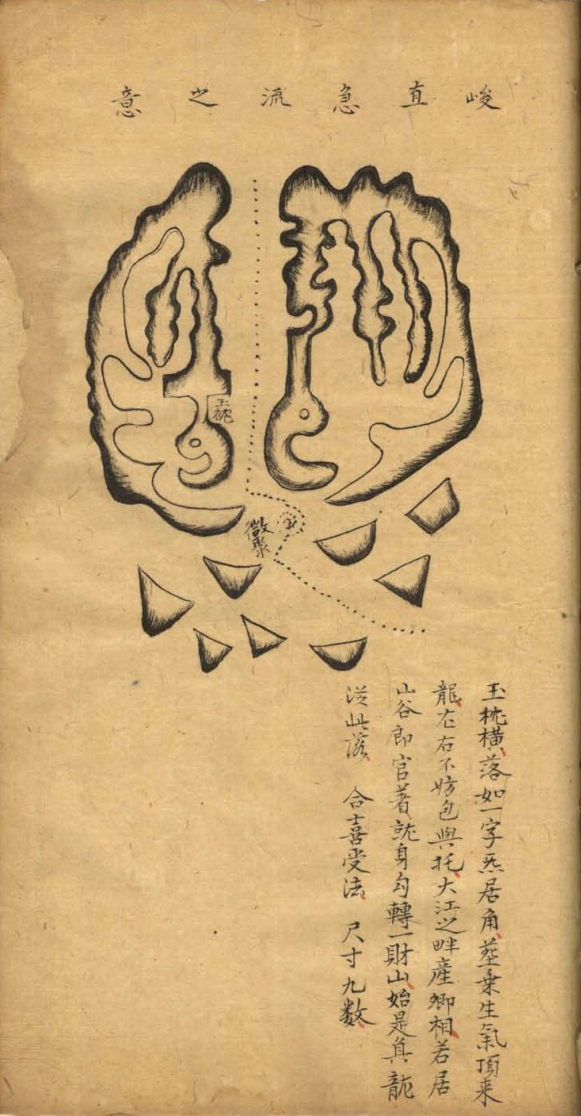 峻直急流之意
玉枕
微聚
玉枕橫落如一字炁居角塟乗生氣頂来
龍左右不妨包與托大江之畔産卿相若居
山谷即官著就身勾轉一財山始是真龍
從此落 合喜受法 尺寸九数